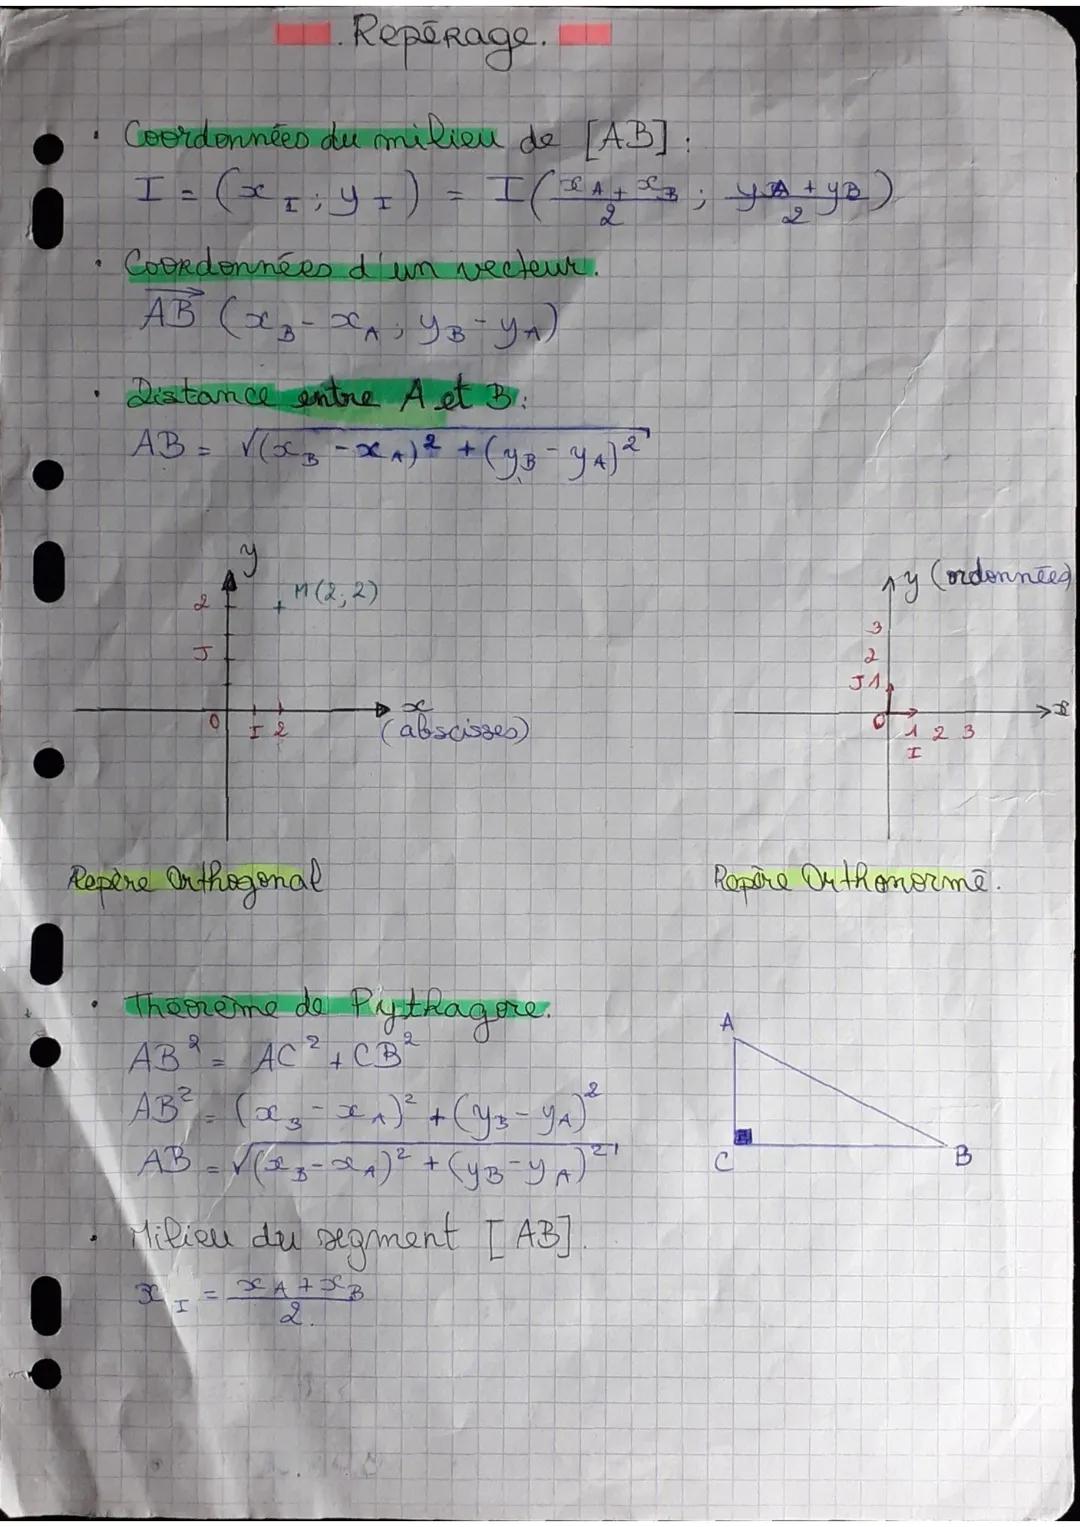 . Repérage.
• Coordonnées du milieu de [AB] :
I = (x_I ; y_I) = I((x_A + x_B)/2 ; (y_A + y_B)/2)
• Coordonnées d'un vecteur.
AB→ (x_B - x_A ; y_B - y_A)
• Distance entre A et B :
AB = √((x_B - x_A)² + (y_B - y_A)²)
y
2
M(2; 2)
J
0
I 2
x
(abscisses)
y (ordonnées)
3
2
J 1
0
1 2 3
I
x
Repère Orthogonal
Repère Orthonormé.
• Théorème de Pythagore.
AB² = AC² + CB²
AB² = (x_B - x_A)² + (y_B - y_A)²
AB = √((x_B - x_A)² + (y_B - y_A)²)
A
C
B
• Milieu du segment [AB].
x_I = (x_A + x_B)/2.